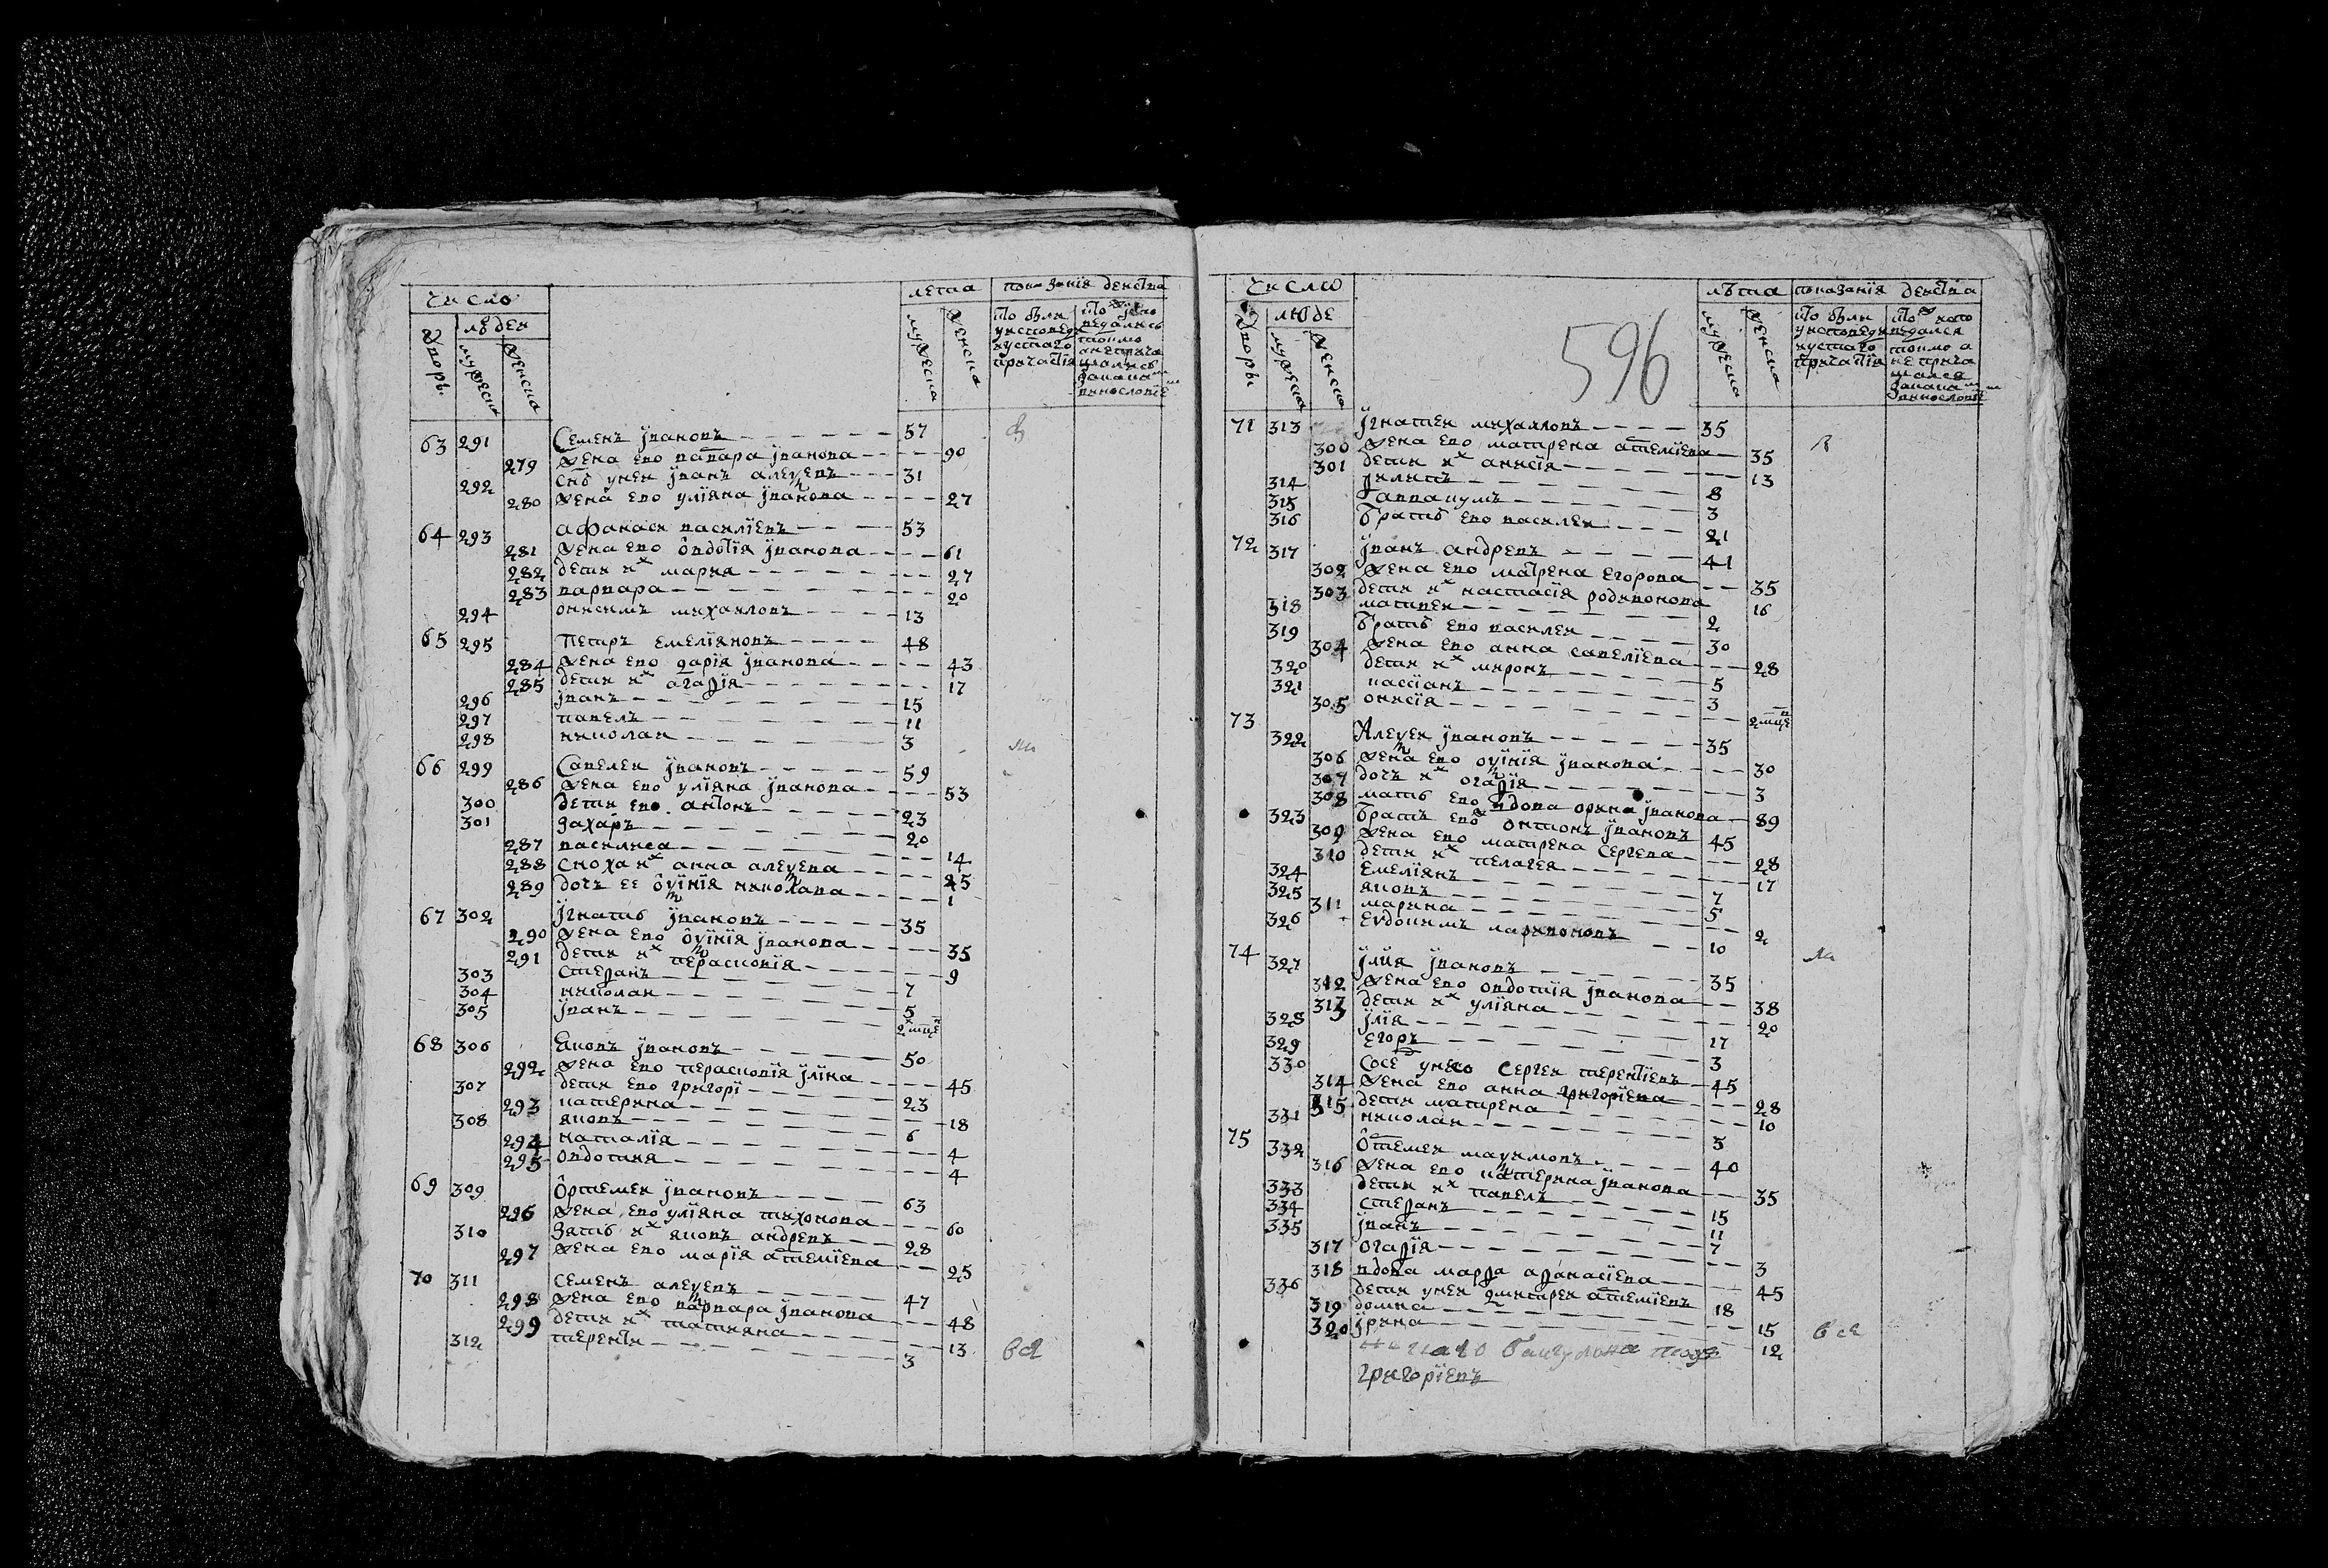 число
людеи
дворы
мужеска
женска
лета
мужеска
женска
показанїя действа
63 291 Семенъ Івановъ 57
279 жена ево варвара Іванова 90
292 снъ у неи Іванъ алеѯеевъ 31
280 жена ево улїяна Іванова 27
64 293 афанасеи василїевъ 53
281 жена ево овдотїя Іванова 61
282 дети их мария 27
283 варвара 20
294 онисимъ михаиловъ 13
65 295 Петръ емелїяновъ 48
284 жена ево дарїя Іванова 43
285 дети их агафїя 17
296 Іванъ 15
297 павелъ 11
298 николаи 3
66 299 Савелеи Івановъ 59
286 жена ево улїяна Іванова 53
300 дети ево антонъ 23
301 захаръ 20
287 василиса 14
288 сноха их анна алеѯеева 25
289 дочь ее оѯїнїя николаева 1
67 302 Ігнатъ Івановъ 35
290 жена ево оѯїнїя Іванова 35
291 дети их перасковїя 9
303 степанъ 7
304 николаи 5
305 Іванъ 2 мцы
68 306 Яковъ Івановъ 50
292 жена ево перасковїя Їлїна 45
307 дети ево григорї 23
293 катерина 18
308 яковъ 6
294 наталїя 4
295 овдотия 4
69 309 Ортемеи Івановъ 63
296 жена ево улїяна тихонова 60
310 зять их яковъ андреевъ 28
297 жена ево марїя атемїева 25
70 311 Семенъ алеѯеевъ 47
298 жена ево варвара Іванова 48
299 дети их татияна 13
312 терентеи 3
число
люде
дворы
мужеска
женска
596
лѣта
мужеска
женска
показанїя действа
71 313 Ігнатеи михаиловъ 35
300 жена ево матрена атемїева 35
301 дети их анисїя 13
314 филипъ 8
315 савакумъ 3
316 братъ ево василеи 21
72 317 Іванъ андреевъ 41
302 жена ево матрена егорова 35
303 дети их настасїя родивонова 16
318 матвеи 2
319 братъ ево василеи 30
304 жена ево анна савелїева 28
320 дети их миронъ 5
321 касїанъ 3
305 онисїя 2 мце
73 322 Алеѯеи Івановъ 35
306 жена ево оѯїнїя Іванова 30
307 дочь их огафїя 3
308 мать ево вдова орина Іванова 89
323 братъ ево онтонъ Івановъ 45
309 жена ево матрена сергеева 28
310 дети их пелагея 17
324 емелїянъ 7
325 яковъ 5
311 марина 2
326 евдокимъ ларивоновъ 10
74 327 Їлия Івановъ 35
312 жена ево овдотїя Іванова 38
313 дети их улїяна 20
328 Їлїя 17
329 егоръ 3
330 Сосе у нево сергеи терентїевъ 45
314 жена ево анна григорїева 28
315 дети матрена 10
331 николаи 3
75 332 Отемеи маѯимовъ 40
316 жена ево катерина Іванова 35
333 дети их павелъ 15
334 степанъ 11
335 Іванъ 7
317 огафїя 3
318 вдова марфа афанасїева 45
336 дети у неи дмитреи атемїевъ 18
319 домна 15
320 Ірина 12
григорїевъ